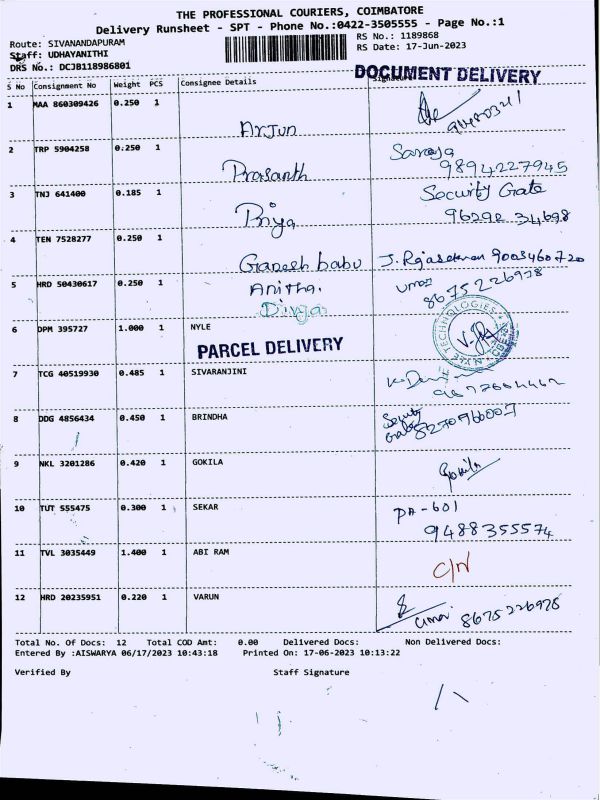 THE PROFESSIONAL COURIERS, COIMBATORE
Delivery Runsheet - SPT - Phone No.:0422-3505555 - Page No.:1
Route: SIVANANDAPURAM RS No.: 1189868
Staff: UDHAYANITHI RS Date: 17-Jun-2023
DRS No.: DCJB118986801
DOCUMENT DELIVERY
S No Consignment No Weight PCS Consignee Details Signature
1 MAA 860309426 0.250 1
Arjun
2 TRP 5904258 0.250 1 Saroja
Prasanth 9894227945
3 TNJ 641400 0.185 1 Security Gate
Priya 96292 34698
4 TEN 7528277 0.250 1
Ganesh babu J. Rajasekaran 9003460720
5 HRD 50430617 0.250 1 Anitha. 8675226978
Divya
6 DPM 395727 1.000 1 NYLE
NYLE TECHNOLOGIES
PARCEL DELIVERY
7 TCG 40519930 0.485 1 SIVARANJINI
8 DDG 4856434 0.450 1 BRINDHA Security Gate 8270966007
9 NKL 3201286 0.420 1 GOKILA Gokila
10 TUT 555475 0.300 1 SEKAR PA-601
9488355574
11 TVL 3035449 1.400 1 ABI RAM C/N
12 HRD 20235951 0.220 1 VARUN 8675226978
Total No. Of Docs: 12 Total COD Amt: 0.00 Delivered Docs: Non Delivered Docs:
Entered By :AISWARYA 06/17/2023 10:43:18 Printed On: 17-06-2023 10:13:22
Verified By Staff Signature